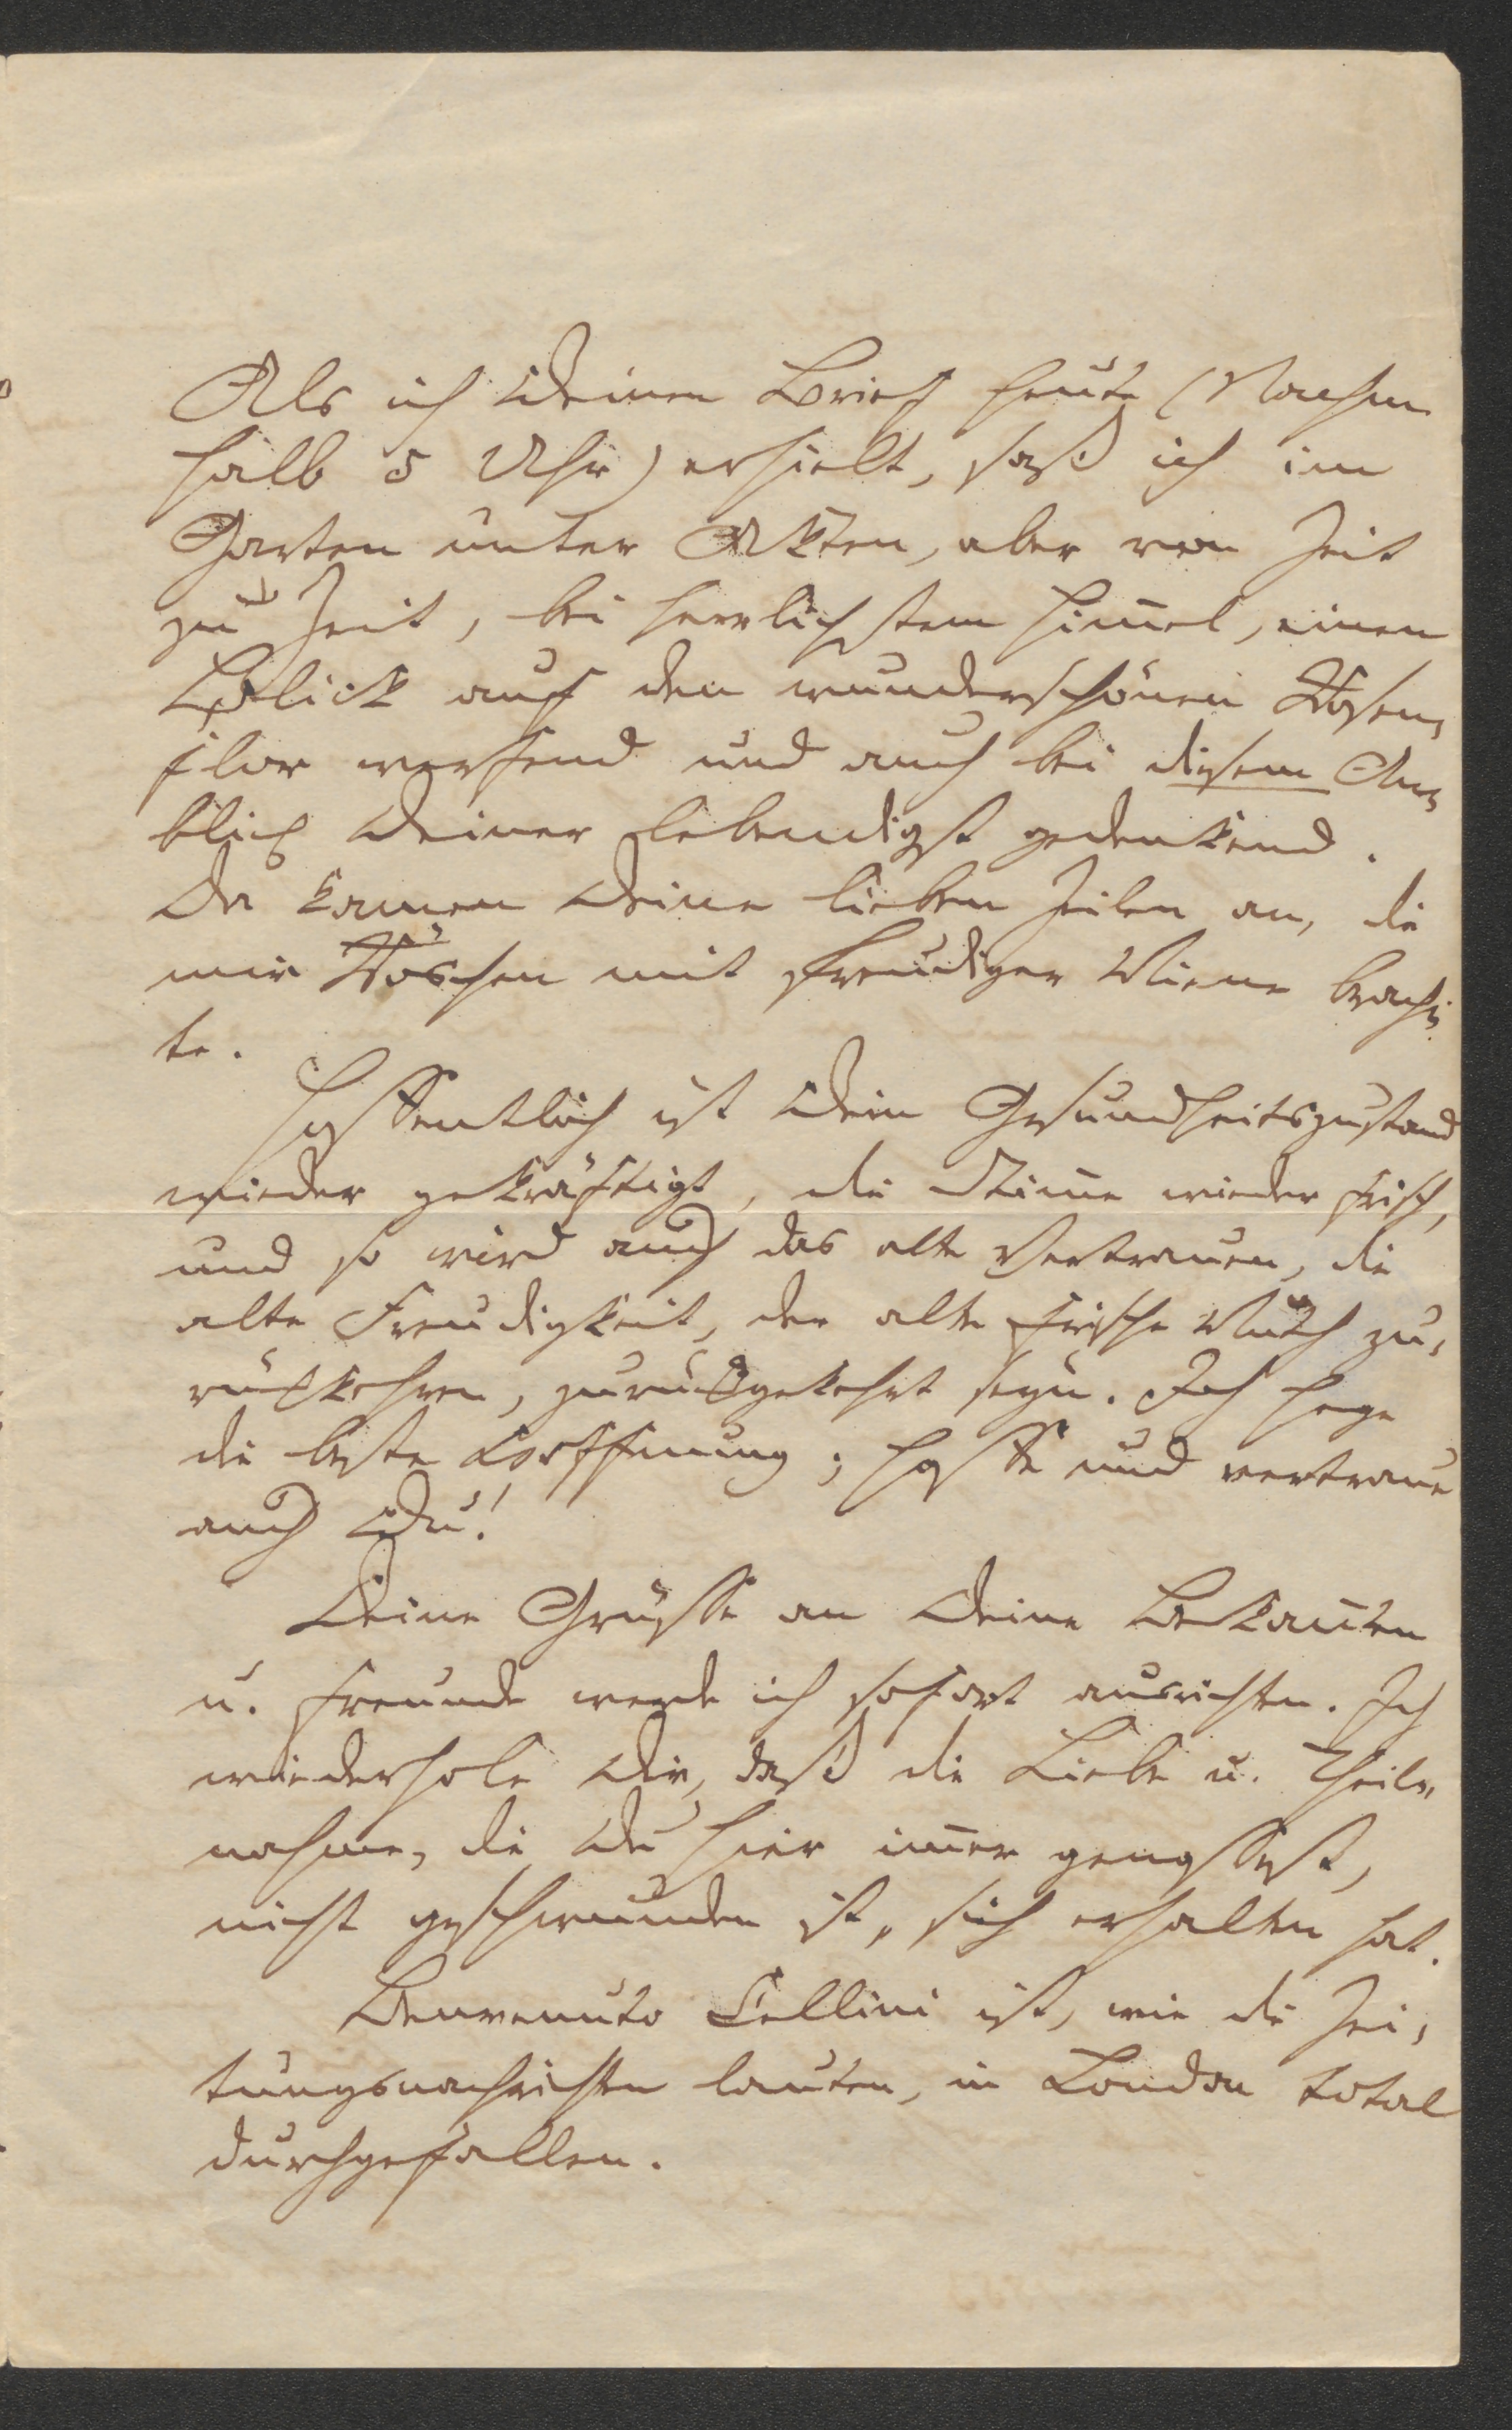 Als ich Deinen Brief heute (Nachm
halb 5 Uhr) erhielt, saß ich im
Garten unter Akten, aber von Zeit
zu Zeit, bei herrlichstem Him̄el, einen
Blick auf den wunderschönen Rosen-
flor werfend und auch bei diesem An-
blick Deiner lebendigst gedenkend.
Da kamen Deine lieben Zeilen an, die
mir Röschen mit freudiger Miene brach-
te.
Hoffentlich ist Dein Gesundheitszustand
wieder gekräftigt, die Stim̄e wieder frisch,
und so wird auch das alte Vertrauen, die
alte Freudigkeit, der alte frische Muth zu-
rückkehren, zurückgekehrt seyn. Ich hege
die beste Hoffnung; hoffe und vertraue
auch Du!
Deine Grüsse an Deine Bekan̄ten
u. Freunde werde ich sofort ausrichten. Ich
wiederhole Dir, daß die Liebe u. Theil-
nahme, die Du hier im̄er genossest,
nicht geschwunden ist, sich erhalten hat.
Benvenuto Cellini ist, wie die Zei-
tungsnachrichten lauten, in London total
durchgefallen.